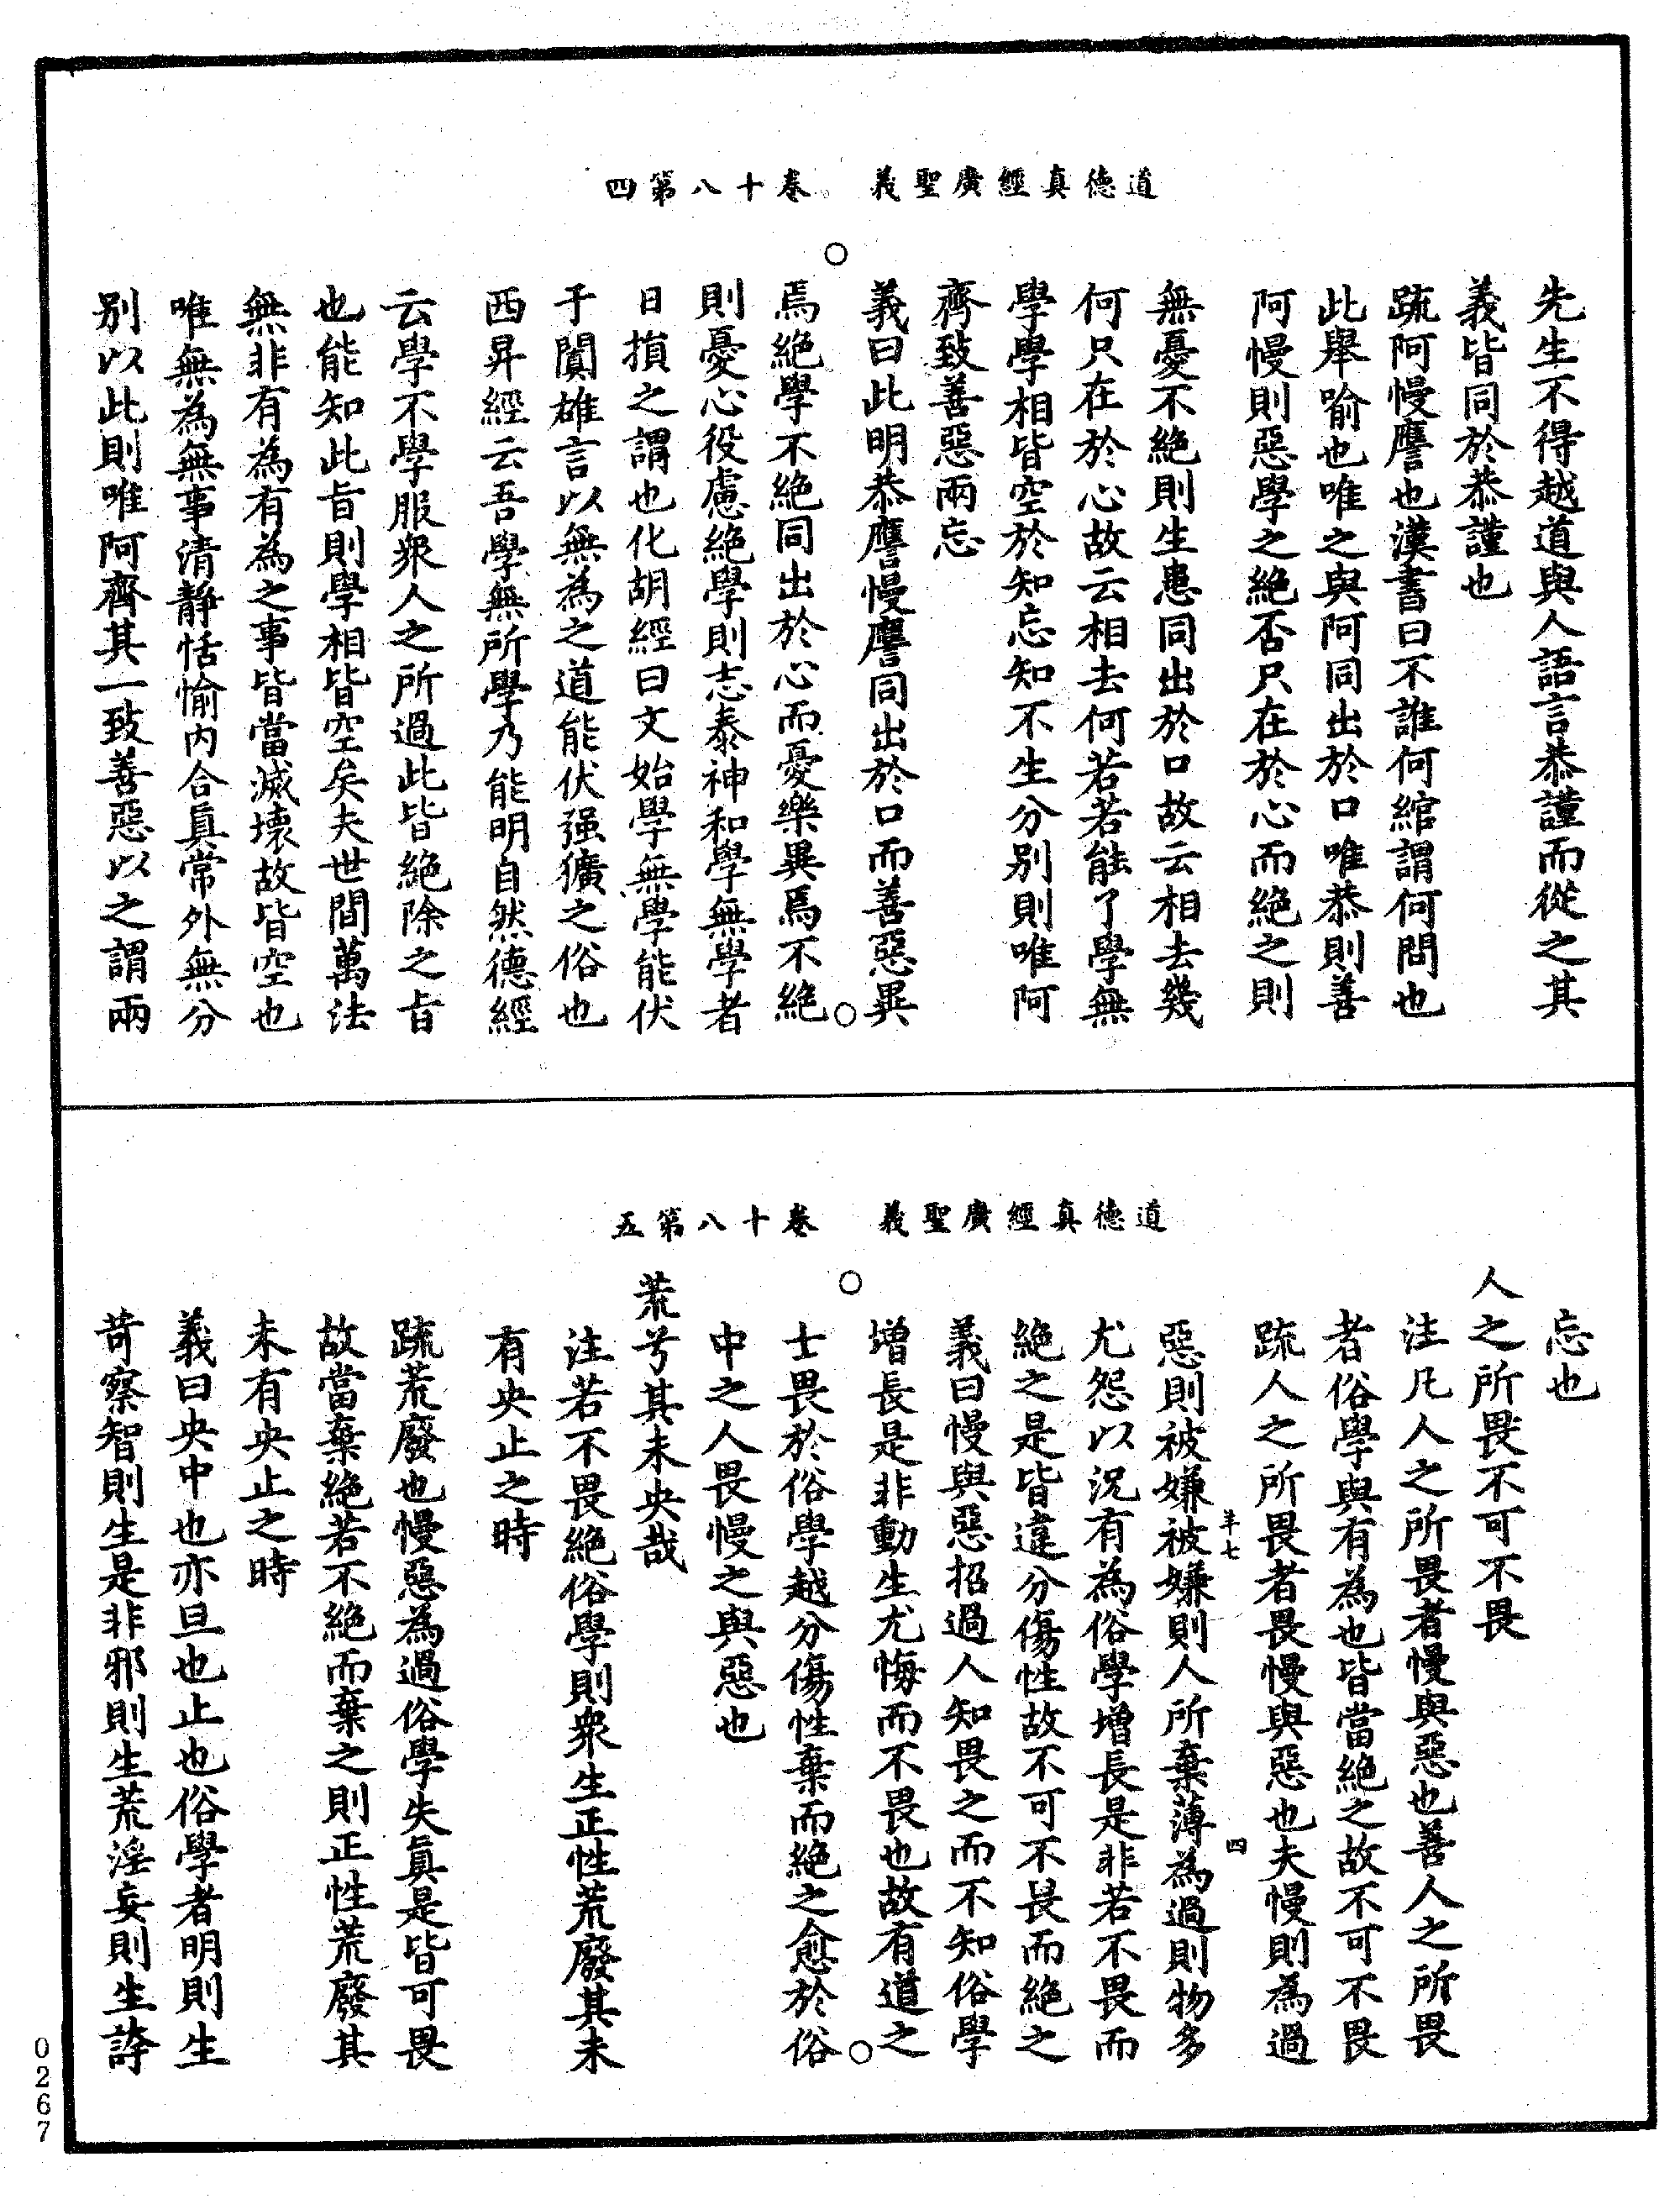 道德真經廣聖義　卷十八第四
先生不得越道與人語言恭謹而從之其
義皆同於恭謹也
䟽阿慢譍也漢書曰不誰何綰謂何問也
此舉喻也唯之與阿同出於口唯恭則善
阿慢則惡學之絶否只在於心而絶之則
無憂不絶則生患同出於口故云相去幾
何只在於心故云相去何若若能了學無
學學相皆空於知忘知不生分別則唯阿
齊致善惡兩忘
義曰此明恭譍慢譍同出於口而善惡異
焉絶學不絶同出於心而憂樂異焉不絶
則憂心役慮絶學則志泰神和學無學者
日損之謂也化胡經曰文始學無學能伏
于闐雄言以無為之道能伏强獷之俗也
西昇經云吾學無所學乃能明自然德經
云學不學服衆人之所過此皆絶除之旨
也能知此旨則學相皆空矣夫世間萬法
無非有為有為之事皆當滅壞故皆空也
唯無為無事清靜恬愉内合真常外無分
別以此則唯阿齊其一致善惡以之謂兩
道德真經廣聖義　卷十八第五
忘也
人之所畏不可不畏
注凡人之所畏者慢與惡也善人之所畏
者俗學與有為也皆當絶之故不可不畏
䟽人之所畏者畏慢與惡也夫慢則為過
惡則被嫌被嫌則人所棄薄為過則物多
羊七
四
尤怨以況有為俗學增長是非若不畏而
絶之是皆違分傷性故不可不畏而絶之
義曰慢與惡招過人知畏之而不知俗學
增長是非動生尤悔而不畏也故有道之
士畏於俗學越分傷性棄而絶之愈於俗
中之人畏慢之與惡也
荒兮其未央哉
注若不畏絶俗學則衆生正性荒廢其未
有央止之時
䟽荒廢也慢惡為過俗學失真是皆可畏
故當棄絶若不絶而棄之則正性荒廢其
未有央止之時
義曰央中也亦旦也止也俗學者明則生
苛察智則生是非邪則生荒淫妄則生誇
0267